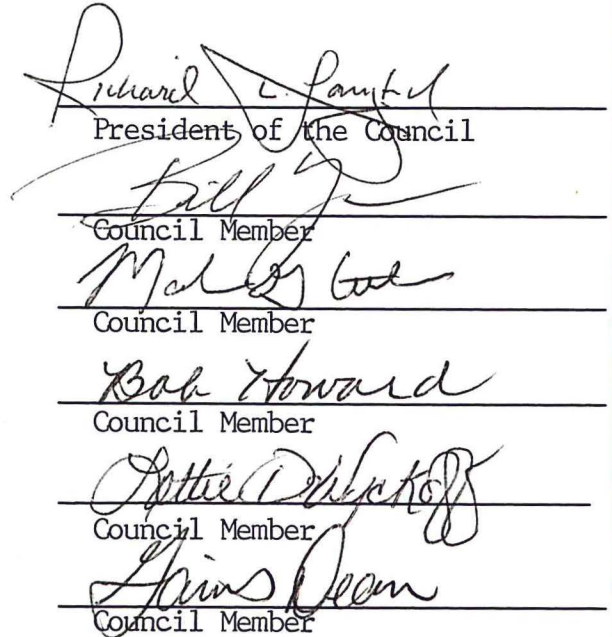 Richard L.
President of the Council
Bill
Council Member
Council Member
Bob Howard
Council Member
Lottie D Wyckoff
Council Member
Dean
Council Member